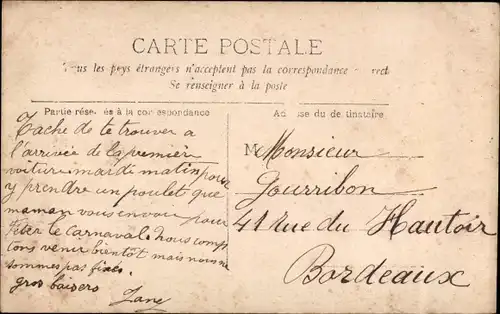 CARTE POSTALE
Tous les pays étrangers n'acceptent pas la correspondance au recto
Se renseigner à la poste
Partie réservée à la correspondance
Tache de te trouver a
l'arrivée de la première
voiture mardi matin pour
y prendre un poulet que
maman vous envoie pour
fêter le Carnaval. Nous comp
tons venir bientôt mais nous ne
sommes pas fixés.
gros baisers
Adresse du destinataire
M Monsieur
Gourribon
41 Rue du Hautoir
Bordeaux